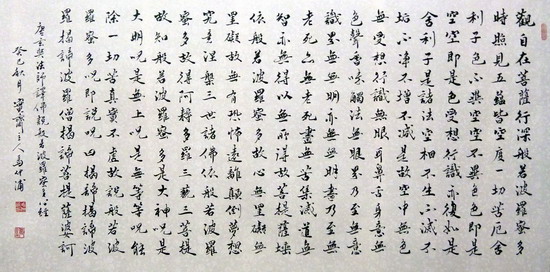 觀自在菩薩行深般若波羅蜜多
時照見五蘊皆空度一切苦厄舍
利子色不異空空不異色色即是
空空即是色受想行識亦復如是
舍利子是諸法空相不生不滅不
垢不淨不增不減是故空中無色
無受想行識無眼耳鼻舌身意無
色聲香味觸法無眼界乃至無意
識界無無明亦無無明盡乃至無
老死亦無老死盡無苦集滅道無
智亦無得以無所得故菩提薩埵
依般若波羅蜜多故心無罣礙無
罣礙故無有恐怖遠離顛倒夢想
究竟涅槃三世諸佛依般若波羅
蜜多故得阿耨多羅三藐三菩提
故知般若波羅蜜多是大神呪是
大明呪是無上呪是無等等呪能
除一切苦真實不虛故說般若波
羅蜜多呪即說呪曰揭諦揭諦波
羅揭諦波羅僧揭諦菩提薩婆訶
唐玄奘法師譯佛說般若波羅蜜多心經
癸巳秋月 齋主人馬